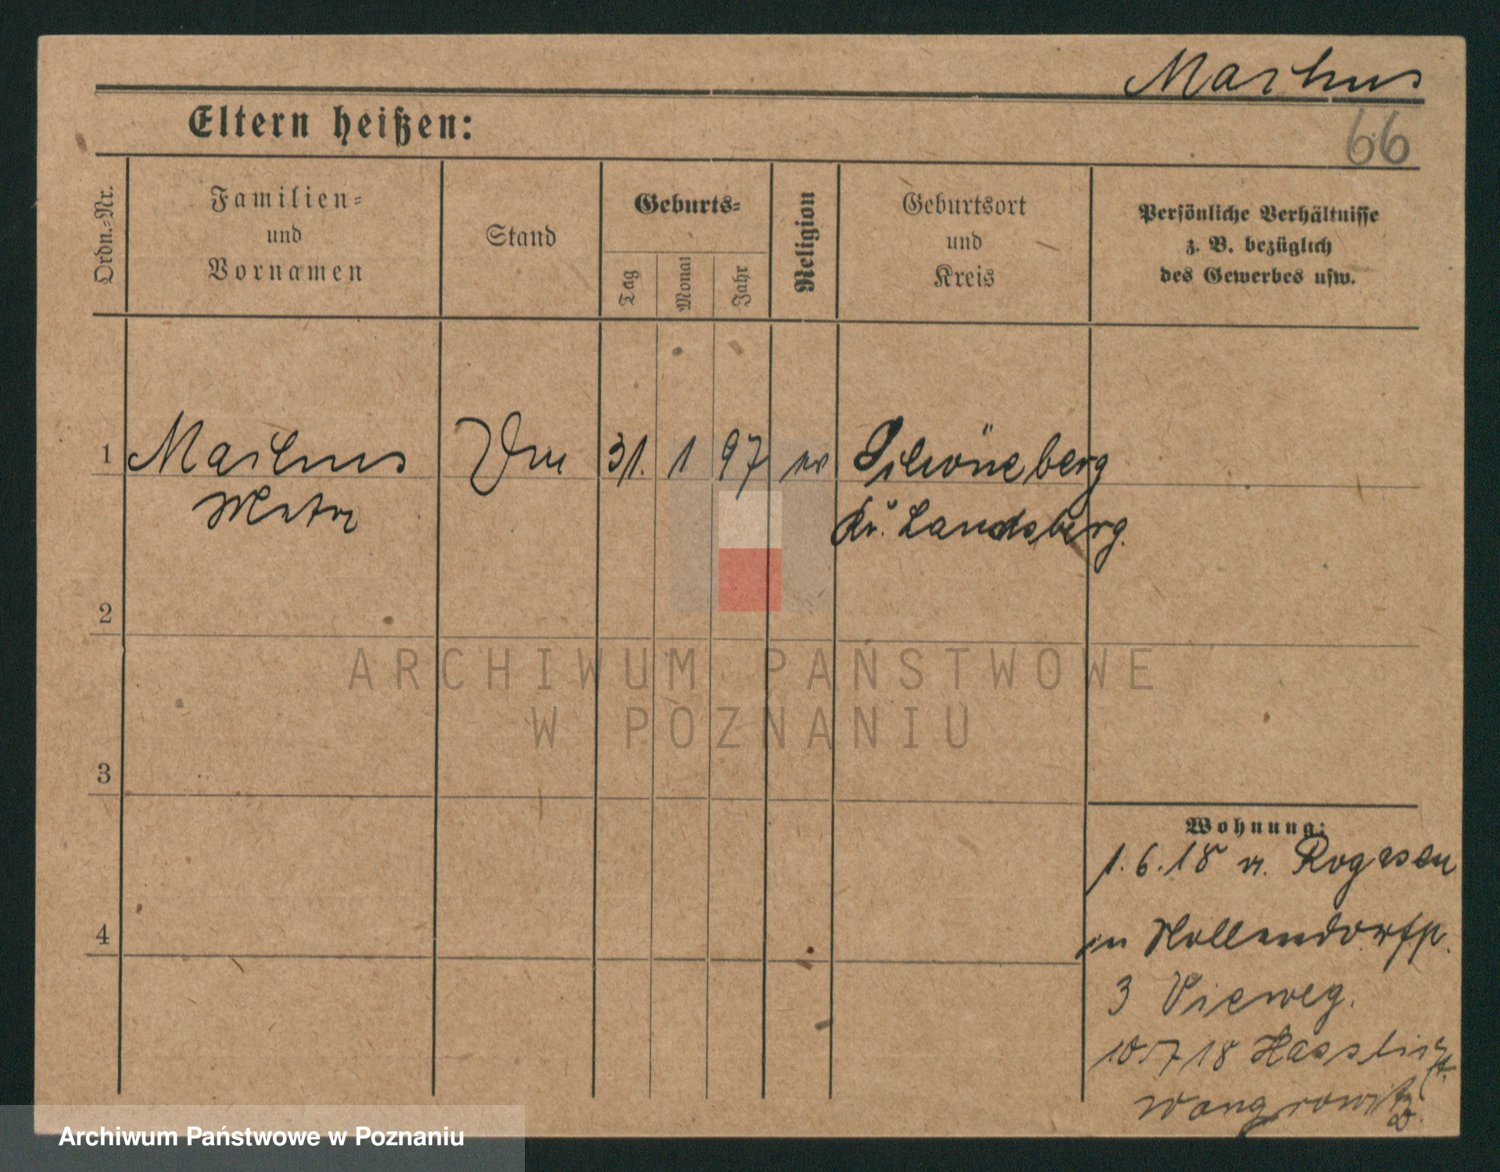 Markus
66
Eltern heißen:
Ordn.=Nr.
Familien=
und
Vornamen
Stand
Geburts=
Tag
Monat
Jahr
Religion
Geburtsort
und
Kreis
Persönliche Verhältnisse
z. B. bezüglich
des Gewerbes usw.
1
Markus
31. 1 97
Schöneberg
Kr. Landsberg.
2
3
4
ARCHIWUM PAŃSTWOWE
W POZNANIU
Wohnung:
1.6.18 v. Rogasen
3 Vieweg.
10.7 18
Wongrowitz.
Archiwum Państwowe w Poznaniu